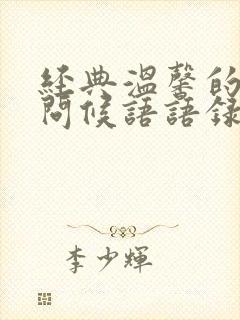 經典溫馨的
問候語語錄
李少輝